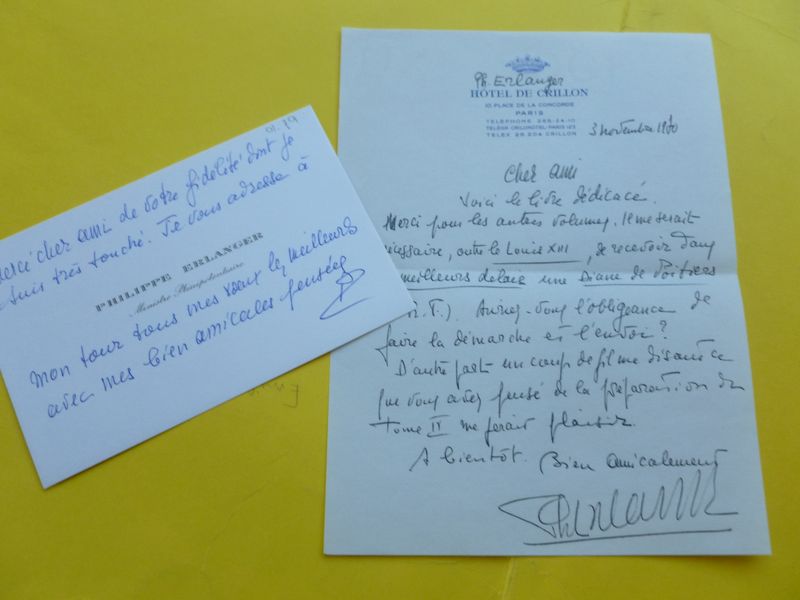 01.79
Merci cher ami de votre fidélité dont je
suis très touché. Je vous adresse à
PHILIPPE ERLANGER
Ministre Plénipotentiaire
mon tour tous mes vœux les meilleurs
avec mes bien amicales pensées
Ph. Erlanger
HÔTEL DE CRILLON
10, PLACE DE LA CONCORDE
PARIS
TÉLÉPHONE 265.24.10
TÉLÉGR. CRILONOTEL-PARIS 123
TELEX 29.204 CRILLON
3 novembre
Cher ami
Voici le livre dédicacé.
Merci pour les autres volumes. Il me serait
nécessaire, outre le Louis XIII, de recevoir dans
meilleurs délais une Diane de Poitiers
Auriez-vous l'obligeance de
faire la démarche et l'envoi?
D'autre part un coup de fil me disant ce
que vous avez pensé de la préparation du
tome IV me ferait plaisir.
A bientôt. Bien amicalement